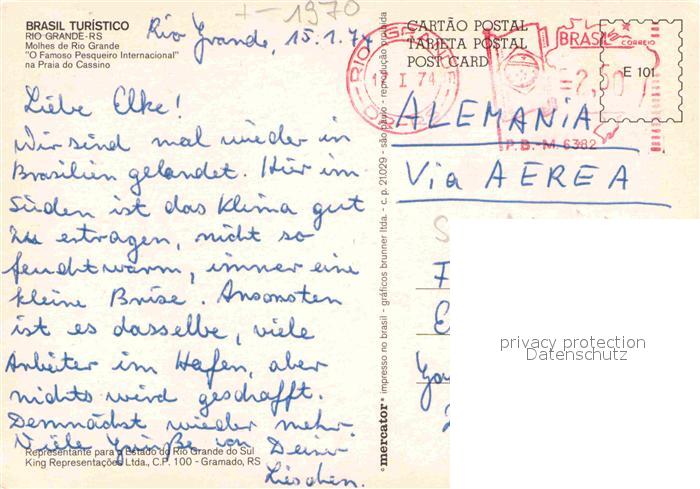 +-1970
BRASIL TURÍSTICO
RIO GRANDE-RS
Molhes de Rio Grande
"O Famoso Pesqueiro Internacional"
na Praia do Cassino
Rio Grande, 15.1.74
Liebe Elke!
Wir sind mal wieder in
Brasilien gelandet. Hier im
Süden ist das Klima gut
zu ertragen, nicht so
feuchtwarm, immer eine
kleine Brise. Ansonsten
ist es dasselbe, viele
Arbeiter im Hafen, aber
nichts wird geschafft.
Demnächst wieder mehr
Viele Grüße von Deiner
Lieschen.
Representante para o Estado do Rio Grande do Sul
King Representações Ltda., C.P. 100 - Gramado, RS
mercator impresso no brasil - gráficos brunner ltda. - c. p. 21.029 - são paulo - reprodução proibida
CARTÃO POSTAL
TARJETA POSTAL
POST CARD
RIO GRANDE
I 74
BRASIL CORREIO
E 101
P.B.-M.6382
ALEMANIA
Via AEREA
F
E
privacy protection
Datenschutz